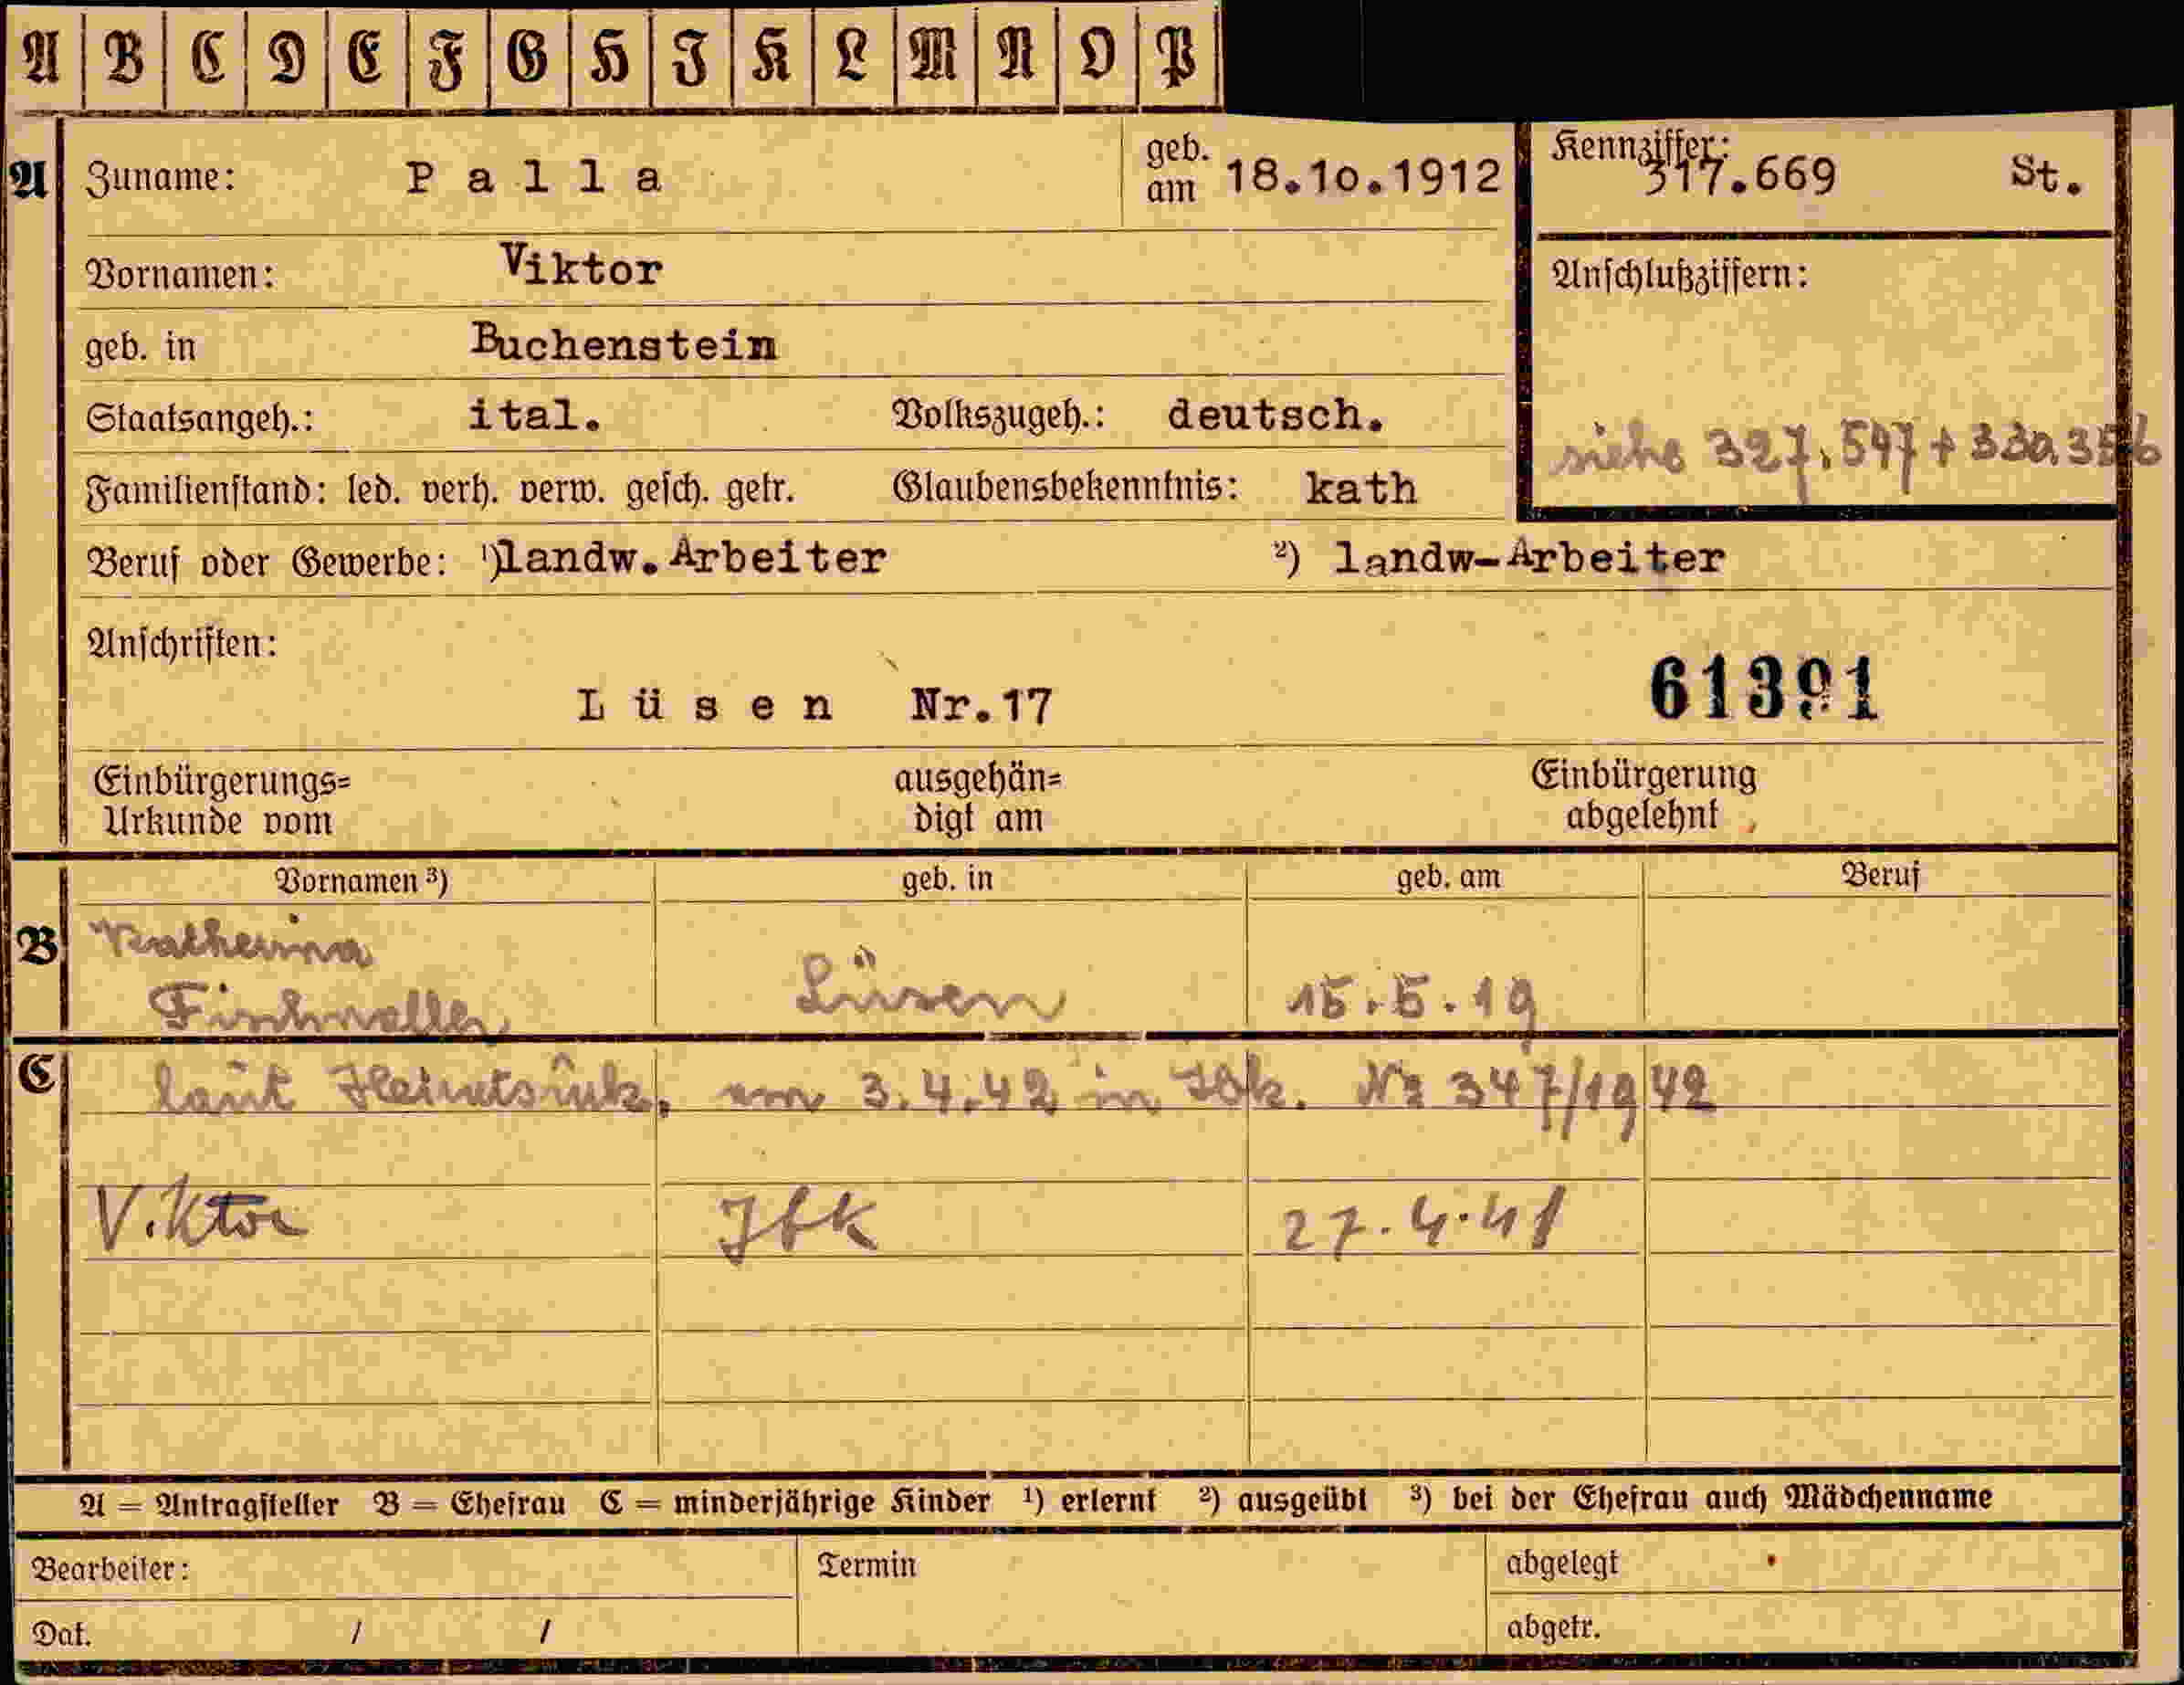 A B C D E F G H I K L M N O P
A Zuname: P a l l a geb. am 18.10.1912 Kennziffer: 317.669 St.
Vornamen: Viktor Anschlußziffern:
geb. in Buchenstein
Staatsangeh.: ital. Volkszugeh.: deutsch. siehe 327,547 + 330.356
Familienstand: led. verh. verw. gesch. getr. Glaubensbekenntnis: kath
Beruf oder Gewerbe: ¹)landw.Arbeiter ²) landw-Arbeiter
Anschriften:
L ü s e n Nr.17 61391
Einbürgerungs= ausgehän= Einbürgerung
Urkunde vom digt am abgelehnt
Vornamen ³) geb. in geb. am Beruf
B Katherina
Fischnaller Lüsen 15.5.19
C laut Heiratsurk. vom 3.4.42 in Ibk. Nr 347/1942
Viktor Ibk 27.4.41
A = Antragsteller B = Ehefrau C = minderjährige Kinder ¹) erlernt ²) ausgeübt ³) bei der Ehefrau auch Mädchenname
Bearbeiter: Termin abgelegt
Dat. / / abgetr.